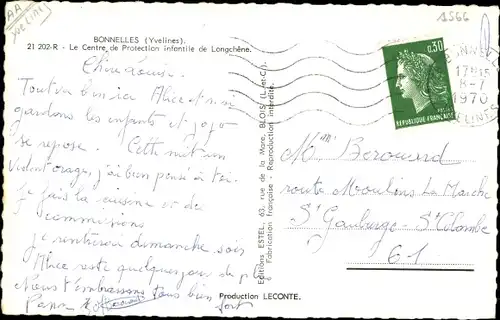 AA
Yvelines
1566
BONNELLES (Yvelines).
21 202-R - Le Centre de Protection infantile de Longchêne.
Chère Louise.
Tout va bien ici Alice et moi
gardons les enfants et jojo
se repose. Cette nuit un
violent orage, j'ai bien pensé à toi.
je fais la cuisine et des
commissions
je rentrerai dimanche soir
Alice reste quelques jours de plus
Nous t'embrassons tous bien
fort
Editions ESTEL, 63, rue de la Mare, BLOIS (L.-et-C.).
Fabrication française - Reproduction interdite.
Production LECONTE.
0,30
POSTES
REPUBLIQUE FRANÇAISE
BONNELLES
17H15
8-7
1970
YVELINES
Mme Berouard
route Moulins La Marche
St Gauburge - St Colombe
61